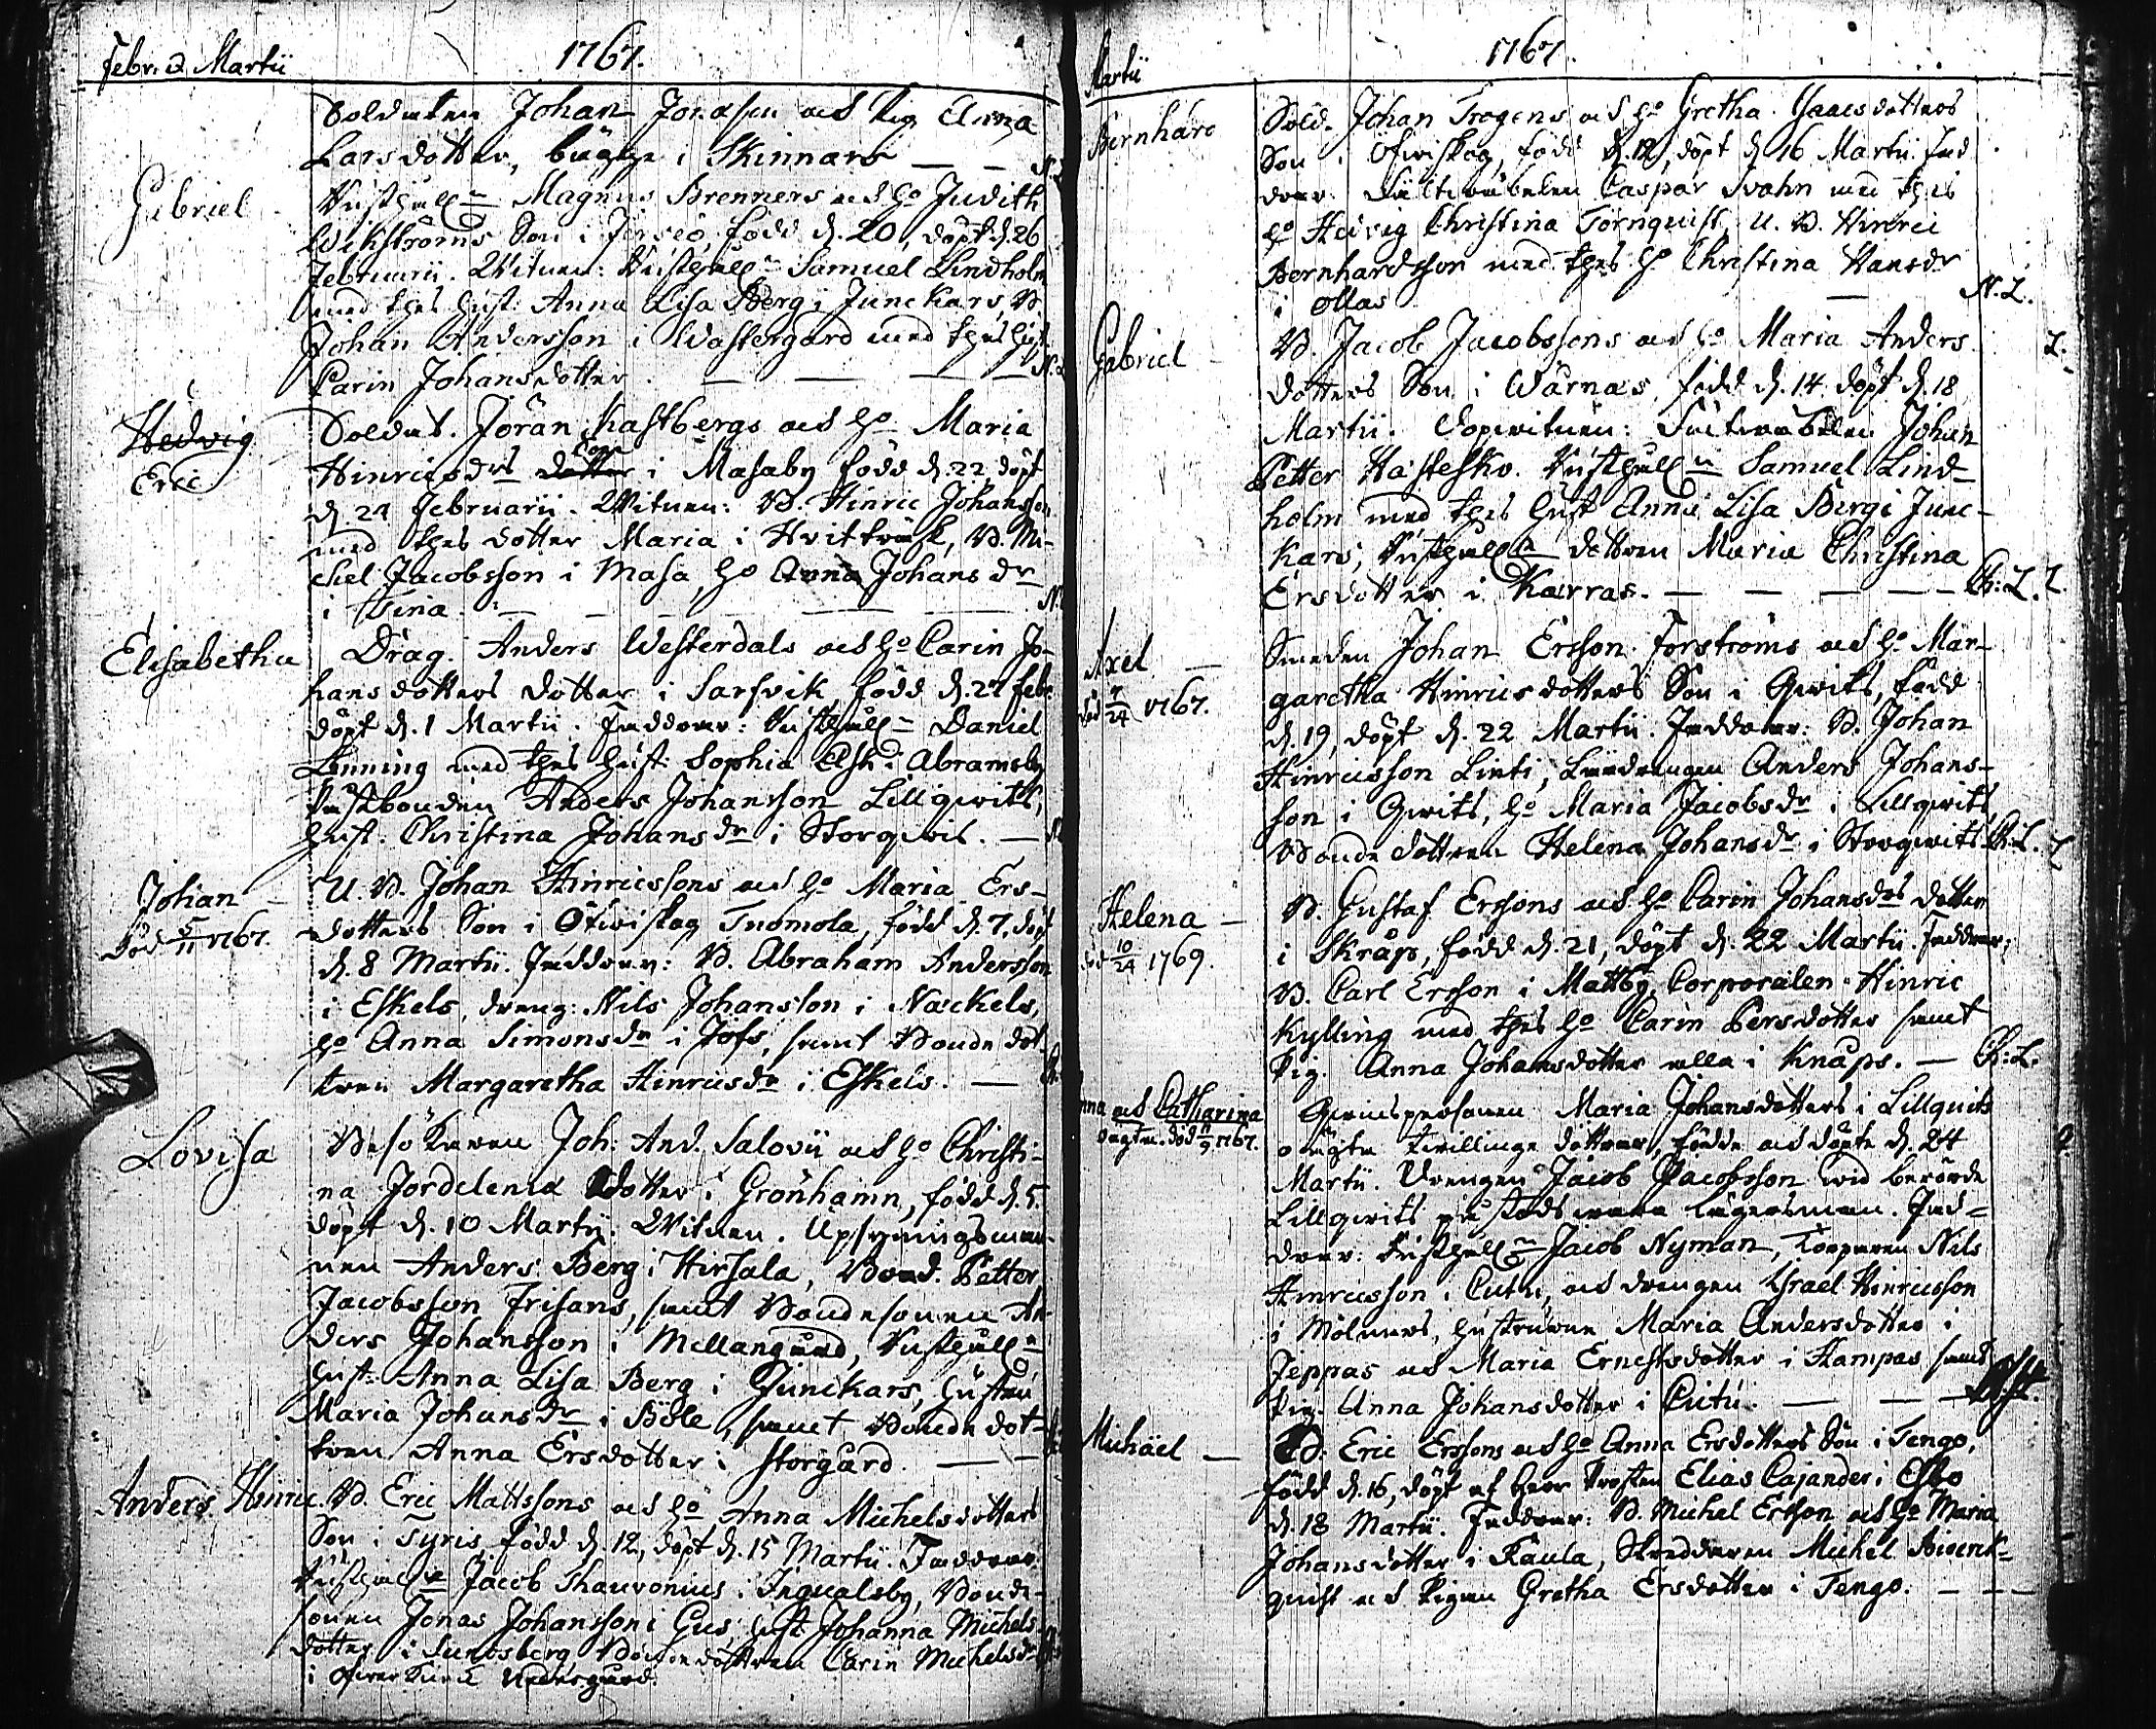 Febr. & Martii 1767.
Soldaten Johan Jonasson och Pig. Anna
Larsdotter, begge i Skinnars — — N.L
Gabriel
Rusthåll:n Magnus Brenners och H:o Judith
Wikströms Son i Jorvö, född d. 20, döpt d. 26
Februarii. Witnen: Rusthåll:n Samuel Lindholm
med thes Hust: Anna Lisa Berg i Junckars, B.
Johan Andersson i Wästergård med thes Hust.
Carin Johansdotter. — — — — N.L
Hedvig
Eric
Soldat. Jöran Kastbergs och H:o Maria
Hinricsdrs dotter Son i Masaby född d. 22 döpt
d. 24 Februarii. Witnen: B. Hinric Johansson
med thes dotter Maria i Hvitträsk, B. Mi-
chel Jacobsson i Masa, H:o Anna Johansdr
i Tina. — — — — N.
Elisabetha
Drag. Anders Westerdals och H:o Carin Jo-
hansdotters dotter i Sarfvik född d. 27 Febr.
döpt d. 1 Martii. Faddrar: Rusthåll:n Daniel
Lönning med thes Hust: Sophia Ask i Abramsby
Rustbonden Anders Johansson Lillqwits,
Hust. Christina Johansdr i Storqwis. — N
Johan —
död 5/11 1767.
U. B. Johan Hinricssons och H:o Maria Ers-
dotters Son i Öfwiskog Tuomola, född d. 7, döpt
d. 8 Martii. Faddrar: B. Abraham Andersson
i Eskels, dreng: Nils Johansson i Näckels,
H:o Anna Simonsdr i Jofs, samt Bonde dot-
tren Margaretha Hinricsdr i Eskels. —
Lovisa
Besökaren Joh: And. Salovii och H:o Christi-
na Jordelenia dotter i Grönhamn, född d. 5.
döpt d. 10 Martii. Witnen. Upsyningsman-
nen Anders Berg i Hirsala, Bond. Petter
Jacobsson Frisans, samt Bondesonen An-
ders Johansson i Mellangård, Rusthåll:n
Hust: Anna Lisa Berg i Junckars, Hustru
Maria Johansdr i Böle, samt Bonde dot-
tren Anna Ersdotter i Storgård. — —
Anders Hinric.
B. Eric Mattssons och H:o Anna Michelsdotters
Son i Tyris, född d. 12, döpt d. 15 Martii. Faddrar
Rusthåll:n Jacob Thauvonius i Ingvalsby, Bonde-
sonen Jonas Johansson i Gus, Hust. Johanna Michels-
dotter i Sundsberg Bondedottren Carin Michelsdr
i Öfwer Nedersgård.
Martii 1767.
Bernhard
Sold. Johan Trogens och H:o Gretha Isaacsdotters
Son i Öfwiskog, född d. 12, döpt d. 16 Martii. Fad
drar Fältwäbelen Caspar Svahn med thes
H:o Hedvig Christina Törnquist, U. B. Hinric
Bernhardsson med thes H:o Christina Hansdr
i Ollas — N. L.
Gabriel —
B. Jacob Jacobssons och H:o Maria Anders
dotters Son i Wårnäs, född d. 14. döpt d. 18
Martii. Dopwitnen: Fältwäbelen Johan
Petter Hästesko. Rusthåll:n Samuel Lind-
holm med thes Hust Anna Lisa Berg i Junc-
kars, Rusthåll:n dottren Maria Christina
Ersdotter i Karras. — — — — Ch: L. L.
Axel —
död 4/24 1767.
Smeden Johan Ersson Forströms och H:o Mar-
garetha Hinricsdotters Son i Qwits, född
d. 19, döpt d. 22 Martii. Faddrar: B. Johan
Hinricsson Linti, Landdrengen Anders Johans-
son i Qwits, H:o Maria Jacobsdr i Lillqwits
Bonde dottren Helena Johansdr i Storqwits Ch: L. L
Helena —
död 10/24 1769.
B. Gustaf Ersons och H:o Carin Johansdrs dotter
i Skråp, född d. 21, döpt d. 22 Martii. Faddrar:
B. Carl Ersson i Mattby, Corporalen Hinric
Kylling med thes H:o Carin Persdotter samt
Pig. Anna Johansdotter alla i Knaps. — Ch: L.
Anna och Catharina
Qwinspersonen Maria Johansdotters i Lillquits
oägta twillinge döttrar, födde och döpte d. 24
Martii. Drengen Jacob Jacobsson wid berörde
Lillqwits lägersman. Fad-
drar: Rusthåll:n Jacob Nyman, Torparen Nils
Hinricsson i Putu, och drengen Israel Hinricsson
i Molnars, Hustrurna Maria Andersdotter i
Jeppas och Maria Ernestsdotter i Kampas samt
Pig. Anna Johansdotter i Putu. — — —
Michäel —
B. Eric Erssons och H:o Anna Ersdotters Son i Tengo,
född d. 16, döpt af Herr Prosten Elias Cajander i Esbo
d. 18 Martii. Faddrar: B. Michel Ersson och H:o Maria
Johansdotter i Kaula, Skreddaren Michel Biörck-
quist och Pigan Gretha Ersdotter i Tengo. — — —